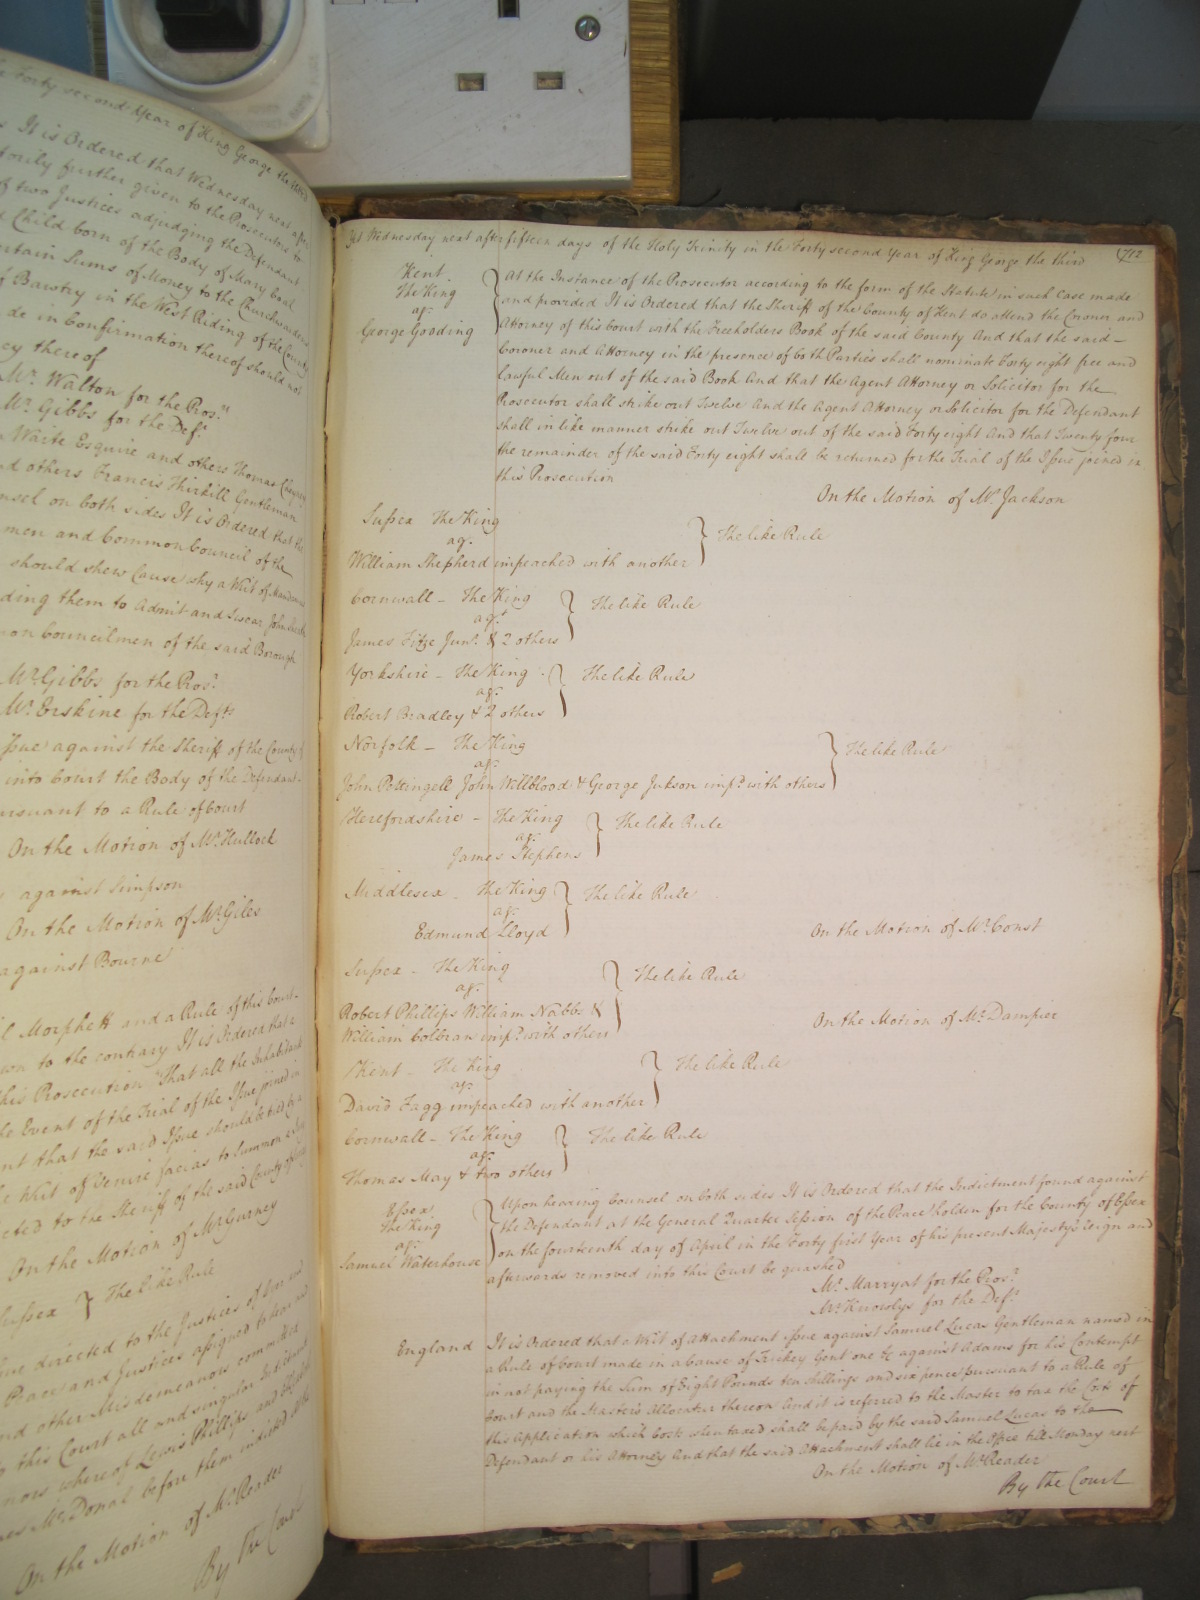 Forty second Year of King George the third
It is Ordered that Wednesday next after
further given to the Prosecutors to
of two Justices adjudging the Defendant
Child born of the Body of Mary
certain Sums of Money to the Churchwardens
Bawtry in the West Riding of the County
in Confirmation thereof should not
thereof
Mr. Walton for the Pros.rs
Mr. Gibbs for the Def.t
Waite Esquire and others Thomas
and others Francis Thirkill Gentleman
on both sides It is Ordered that the
men and Common Council of the
should shew Cause why a Writ of Mandamus
them to Admit and Swear John
Councilmen of the said Borough
Mr. Gibbs for the Pros.r
Mr. Erskine for the Def.ts
Issue against the Sheriff of the County
into Court the Body of the Defendant
pursuant to a Rule of Court
On the Motion of Mr. Hullock
against Simpson
On the Motion of Mr. Giles
against Bourne
Morphett and a Rule of this Court
to the contrary It is Ordered that
this Prosecution That all the Inhabitants
the Event of the Trial of the Issue joined in
that the said Issue should be tried by a
Writ of Venire facias to Summon a Jury
directed to the Sheriff of the said County of
On the Motion of Mr. Gurney
Sussex } The like Rule
directed to the Justices of
Peace and Justices assigned to hear and
and other Misdemeanors committed
this Court all and singular Indictments
whereof Lewis Phillips and
Mc.Donal before them indicted
On the Motion of Mr. Reader
By the Court
Wednesday next after fifteen days of the Holy Trinity in the Forty second Year of King George the third
Kent At the Instance of the Prosecutor according to the form of the Statute in such Case made
The King and provided It is Ordered that the Sheriff of the County of Kent do attend the Coroner and
ag.t
George Gooding Attorney of this Court with the Freeholders Book of the said County And that the said
Coroner and Attorney in the presence of both Parties shall nominate Forty eight free and
lawful Men out of the said Book And that the Agent Attorney or Solicitor for the
Prosecutor shall strike out Twelve And the Agent Attorney or Solicitor for the Defendant
shall in like manner strike out Twelve out of the said Forty eight And that Twenty four
the remainder of the said Forty eight shall be returned for the Trial of the Issue joined in
this Prosecution
On the Motion of Mr. Jackson
Sussex The King
ag.t } The like Rule
William Shepherd impeached with another
Cornwall – The King } The like Rule
ag.t
James Fitze Jun.r & 2 others
Yorkshire – The King } The like Rule
ag.t
Robert Bradley & 2 others
Norfolk – The King } The like Rule
ag.t
John Pottingell John Willblood & George Jukson imp.d with others
Herefordshire – The King } The like Rule
ag.t
James Stephens
Middlesex – The King } The like Rule
ag.t
Edmund Lloyd On the Motion of Mr. Const
Sussex – The King } The like Rule
ag.t
Robert Phillips William Nabbs & On the Motion of Mr. Dampier
William Colbran imp.d with others
Kent – The King } The like Rule
ag.t
David Fagg impeached with another
Cornwall – The King } The like Rule
ag.t
Thomas May & two others
Essex Upon hearing Counsel on both sides It is Ordered that the Indictment found against
The King the Defendant at the General Quarter Session of the Peace holden for the County of Essex
ag.t on the fourteenth day of April in the Forty first Year of his present Majesty's reign and
Samuel Waterhouse afterwards removed into this Court be quashed
Mr. Marryat for the Pros.r
Mr. Knowlys for the Def.t
England It is Ordered that a Writ of Attachment issue against Samuel Lucas Gentleman named in
a Rule of Court made in a Cause of Trickey Gent one &c against Adams for his Contempt
in not paying the Sum of Eight Pounds ten Shillings and sixpence pursuant to a Rule of
Court and the Master's Allocatur thereon And it is referred to the Master to tax the Costs of
this Application which Costs when taxed shall be paid by the said Samuel Lucas to the
Defendant or his Attorney And that the said Attachment shall lie in the Office till Monday next
On the Motion of Mr. Reader
By the Court